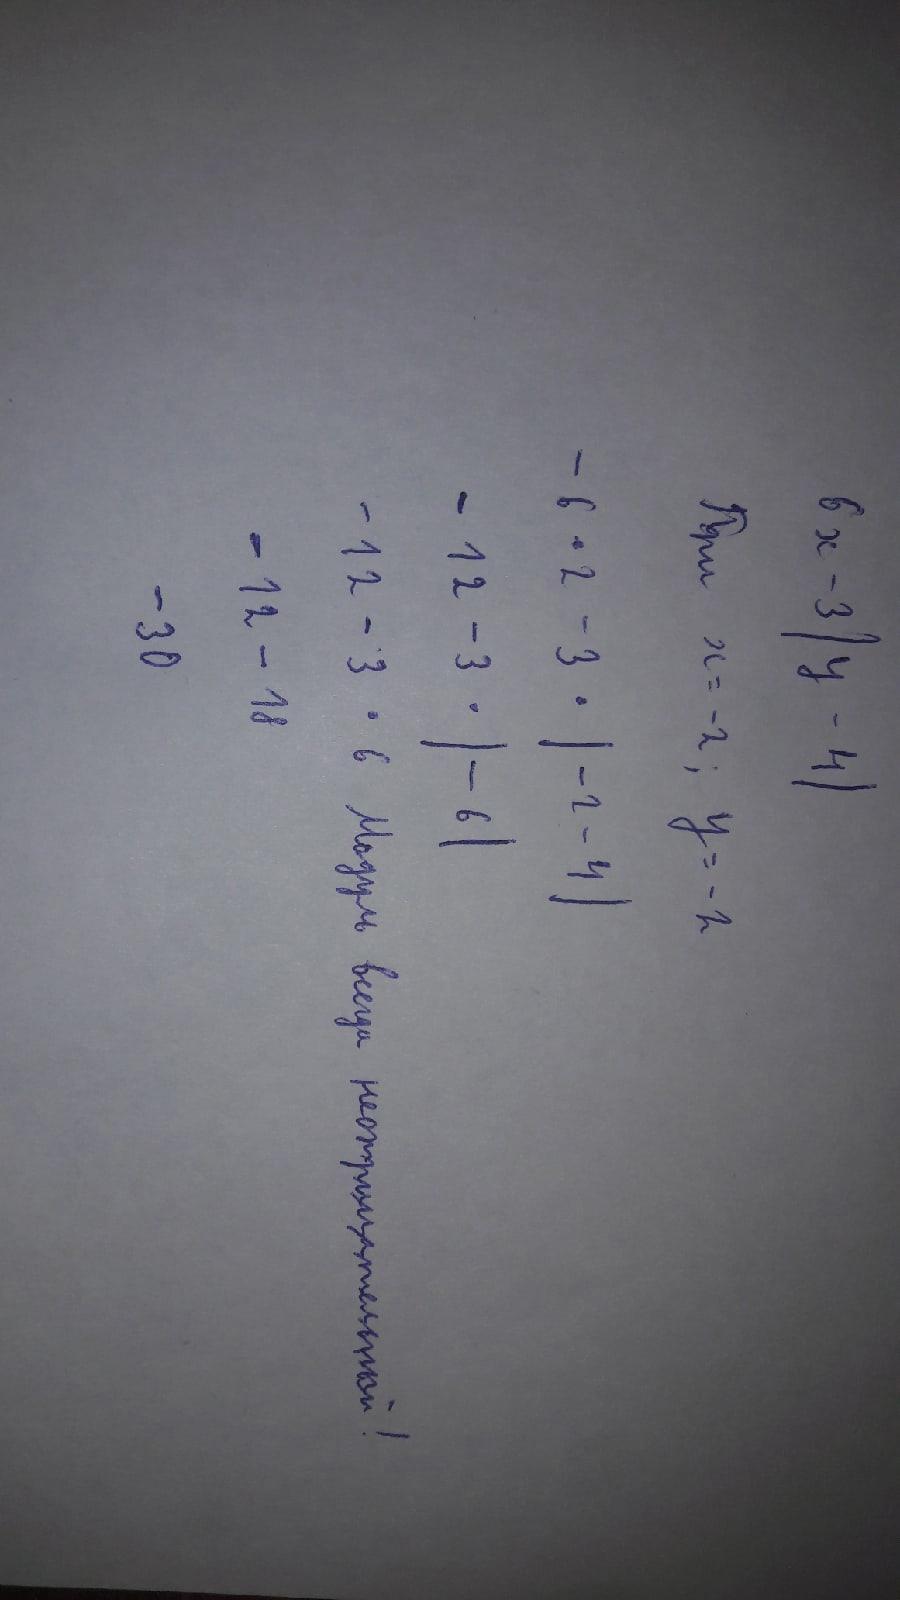 6x - 3|y - 4|
При x = -2; y = -2
- 6 · 2 - 3 · |-2 - 4|
- 12 - 3 · |- 6|
- 12 - 3 · 6 Модуль всегда неотрицательный!
- 12 - 18
- 30